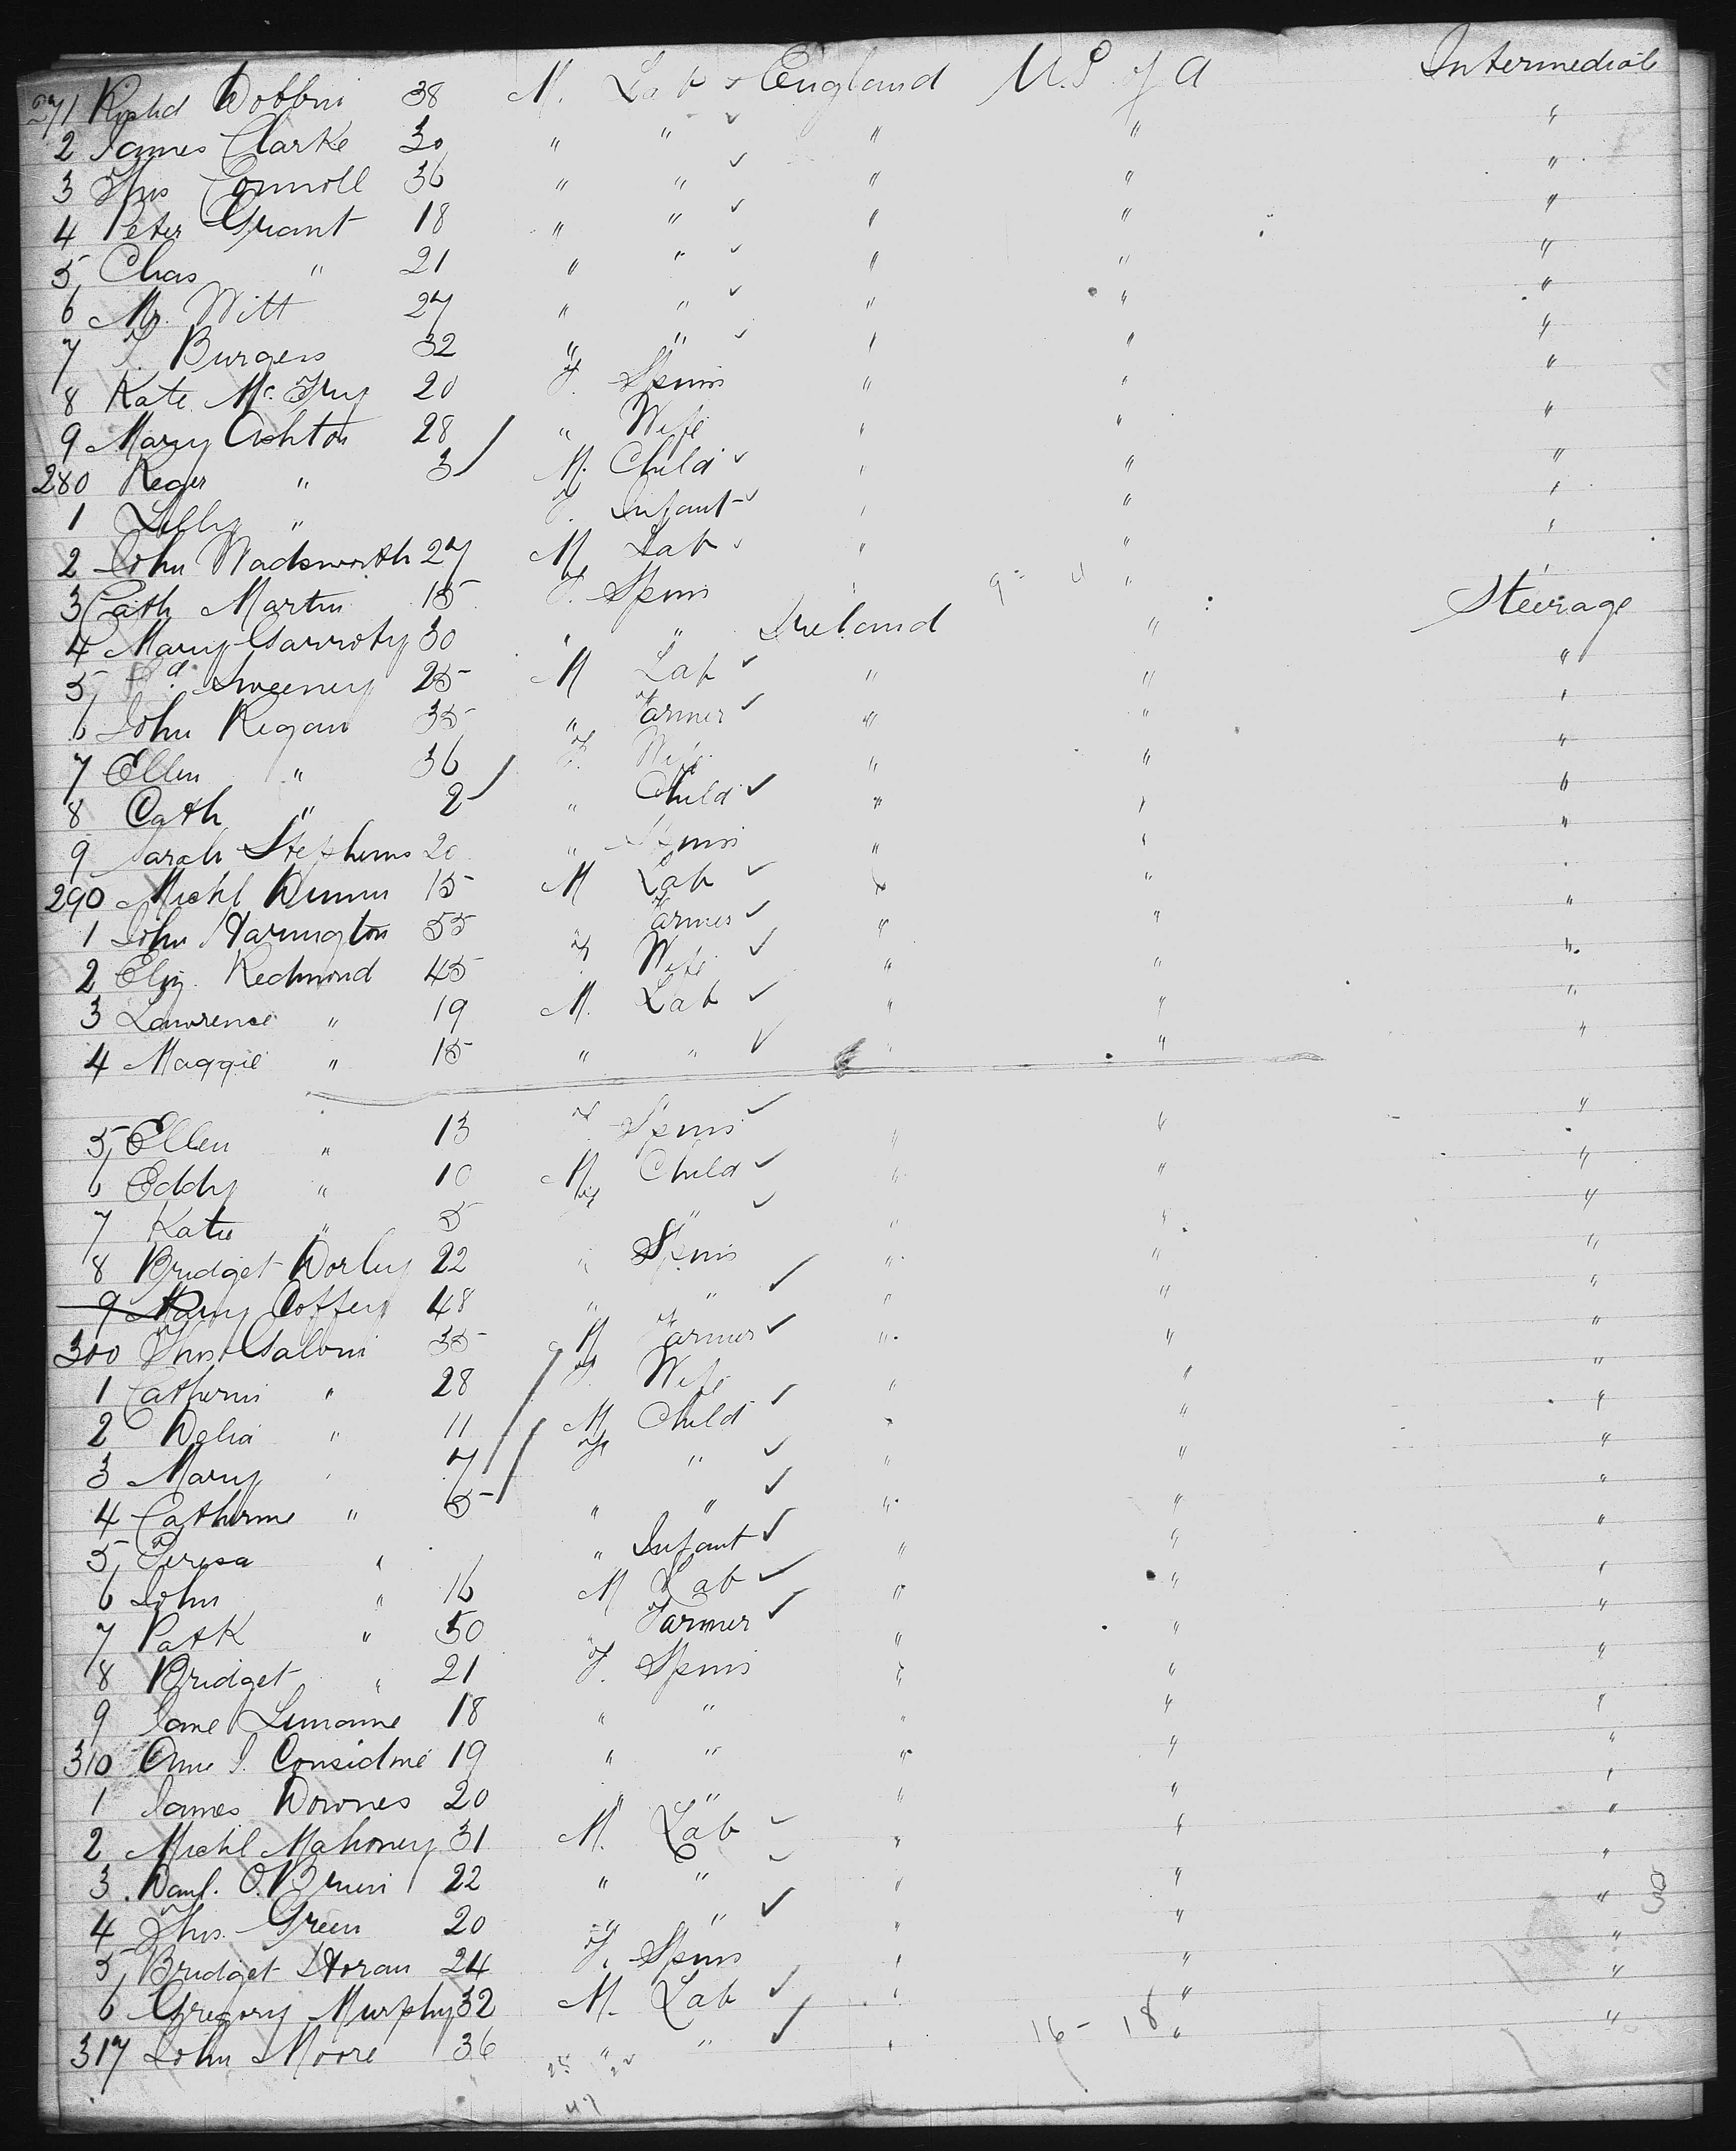 271 Richd Dobbin 38 M. Lab England U.S of A Intermediate
2 James Clarke 30 " " " " "
3 Thos Connoll 36 " " " " "
4 Peter Grant 18 " " " " "
5 Chas " 21 " " " " "
6 Mr. Witt 27 " " " " "
7 Burgess 32 " " " " "
8 Kate Mc 20 F. Spins " " "
9 Mary Ashton 28 " Wife " " "
280 Roger " 3 M. Child " " "
1 Lilly " F. Infant " " "
2 John Wadsworth 27 M Lab " " "
3 Cath Martin 15 F. Spins " " "
4 Mary Garroty 30 " " Ireland " Steerage
5 Sweeney 25 M Lab " " "
6 John Regan 35 " Farmer " " "
7 Ellen " 36 F. Wife " " "
8 Cath " 2 " Child " " "
9 Sarah Stephens 20 " Spins " " "
290 Michl Dunn 15 M Lab " " "
1 John Harrington 55 " Farmer " " "
2 Eliz. Redmond 45 F Wife " " "
3 Lawrence " 19 M. Lab " " "
4 Maggie " 15 " " " " "
5 Ellen " 13 F Spins " " "
6 Eddy " 10 M Child " " "
7 Kate " 5 F " " " "
8 Bridget Dorley 22 " Spins " " "
9 Mary Coffey 48 " " " " "
300 Thos Galvin 35 M Farmer " " "
1 Catherin " 28 F. Wife " " "
2 Delia " 11 M Child " " "
3 Mary " 7 F " " " "
4 Catherine " 5 " " " " "
5 Teresa " " Infant " " "
6 John " 16 M Lab " " "
7 Patk " 50 " Farmer " " "
8 Bridget " 21 F. Spins " " "
9 Jane 18 " " " " "
310 Anne J. Considine 19 " " " " "
1 James Downes 20 " " " " "
2 Michl Mahoney 31 M. Lab " " "
3 Danl. O.Brien 22 " " " " "
4 Thos. Green 20 " " " " "
5 Bridget Horan 24 F. Spins " " "
6 Gregory Murphy 32 M. Lab " " "
317 John Moore 36 " " " 16 - 18 " "